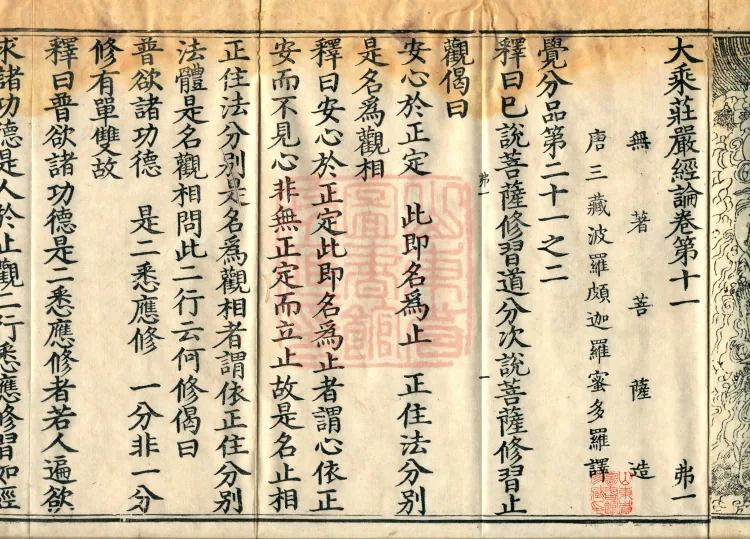 大乘莊嚴經論卷第十一 弗一
無著菩薩造
唐三藏波羅頗迦羅蜜多羅譯
覺分品第二十一之二
釋曰已說菩薩修習道分次說菩薩修習止
弗一 一
觀偈曰
安心於正定 此即名為止 正住法分別
是名為觀相
釋曰安心於正定此即名為止者謂心依正
安而不見心非無正定而立止故是名止相
正住法分別是名為觀相者謂依正住分別
法體是名觀相問此二行云何修偈曰
普欲諸功德 是二悉應修 一分非一分
修有單雙故
釋曰普欲諸功德是二悉應修者若人遍欲
求諸功德是人於止觀二行悉應修習如經